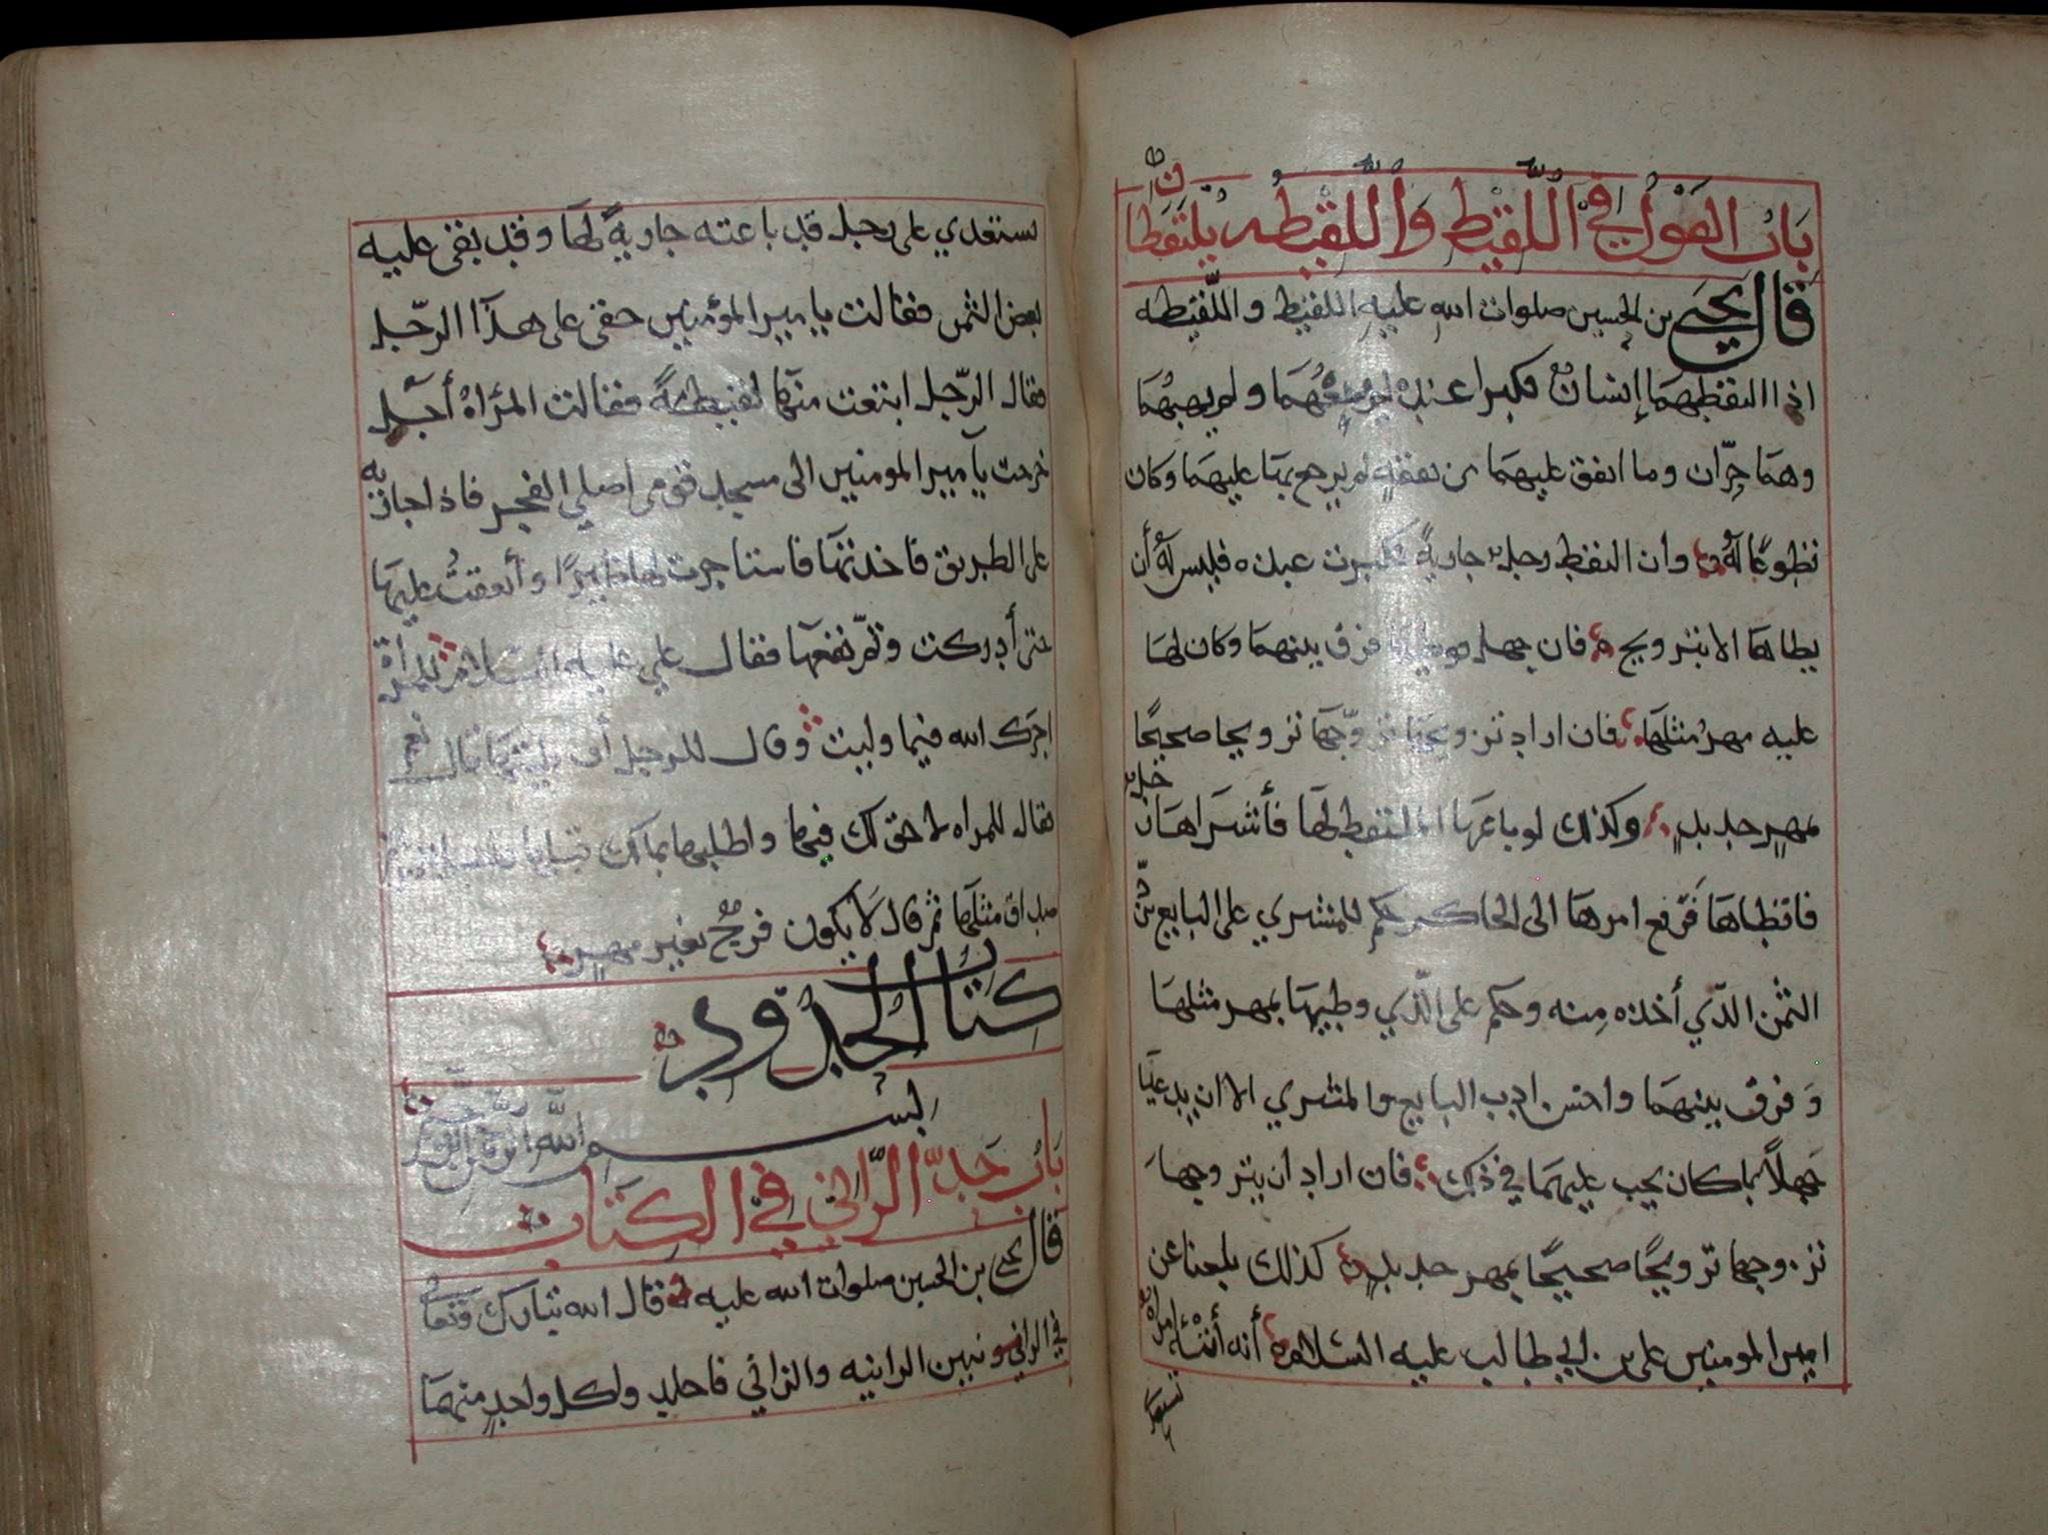 باب القول في اللقيط واللقيطه يلتقطان
قال يحيى بن الحسين صلوات الله عليه اللقيط واللقيطه
اذا التقطهما إنسان فكبرا عنده لم يبعهما ولم يهبهما
وهما حران وما انفق عليهما من نفقة لم يرجع بها عليهما وكان
تطوعا له وان التقط رجل جارية فكبرت عنده فليس له أن
يطاها الا بتزويج فان جهل فوطئها فرق بينهما وكان لها
عليه مهر مثلها فان اراد تزويجها تزوجها تزويجا صحيحا
بمهر جديد وكذلك لو باعها الملتقط لها فأشتراها رجل
فاقتظاها فرفع امرها الى الحاكم حكم للمشتري على البايع برد
الثمن الذي أخذه منه وحكم على الذي وطيها بمهر مثلها
وفرق بينهما واحسن ادب البايع والمشتري الا ان يدعيا
جهلا بما كان يجب عليهما في ذلك فان اراد ان يتزوجها
تزوجها تزويجا صحيحا بمهر جديد كذلك بلغنا عن
امير المومنين علي بن ابي طالب عليه السلام أنه أتته امراة
تستعدي
تستعدي على رجل قد باعته جارية لها وقد بقى عليه
بعض الثمن فقالت يا مير المؤمنين حقى على هذا الرجل
فقال الرجل ابتعت منها لقيطة فقالت المراه أجل
خرجت يا مير المومنين الى مسجد قومى اصلي الفجر فاذا جاريه
على الطريق فاخذتها فاستاجرت لها ظيرا وأنفقت عليها
حتى أدركت وتم نفعها فقال علي عليه السلام للمرأة
اجرك الله فيما وليت وقال للرجل أوطيتها قال نعم
فقال للمراه لا حق لك فيها واطلبها بمالك
صداق مثلها ثم قال لا يكون فرج بغير مهر
كتاب الحدود
بسم الله الرحمن الرحيم
باب حد الزاني في الكتاب
قال يحيى بن الحسين صلوات الله عليه قال الله تبارك وتعالى
في الزاني ونبين الزانيه والزاني فاجلدوا كل واحد منهما